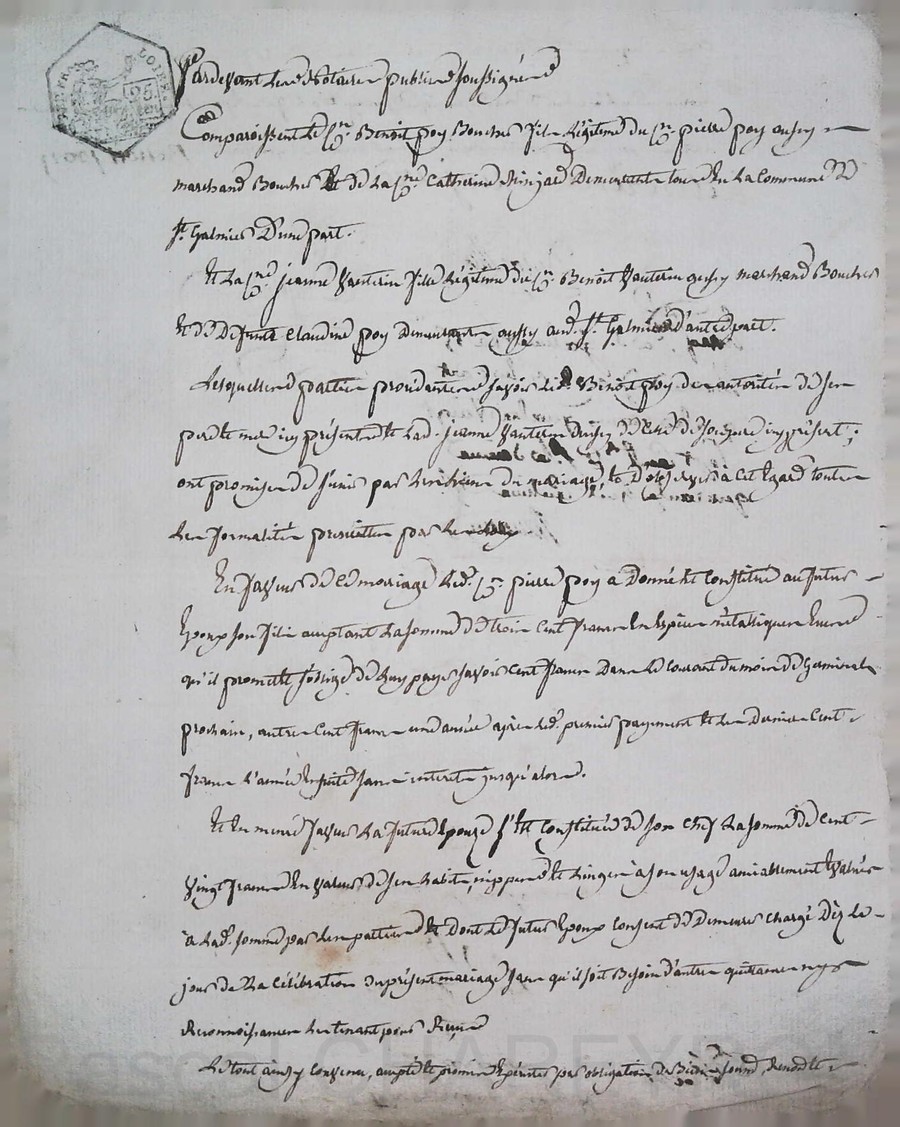 Pardevant les Notaires publics soussignés
Comparoissent le Cen. Benoit poy Boucher fils légitime du Cen. pierre poy aussy
marchand Boucher Et de La Cne Catherine Demeurants tous En La Commune de
St. Galmier D'une part.
Et La Cne jeanne Vauterin fille Légitime du Cen. Benoit Vauterin aussy marchand Boucher
Et de Defunte Claudine poy Demeurante aussy aud. St. Galmier d'autre part.
Lesquelles parties procédantes savoir led. Benoit poy des autorités de ses
pere et mere icy présents et lad. jeanne Vauterin aussy de celle de son pere icy présent;
ont promis de s'unir par le lien du mariage, et d'observer à cet Egard toutes
Les formalités prescrittes par les loix
En faveur de ce mariage Led. Cen. pierre poy a Donné Et Constitué au futur
Epoux son fils acceptant La somme de trois Cent francs En Espèces métalliques
qu'il promet et s'oblige de Luy payer savoir Cent francs Dans le courant du mois de Germinal
prochain, autres Cent francs une année après led. premier payement Et les Derniers Cent
francs L'année Ensuite sans interets jusqu'alors.
Et En meme faveur La future Epouse s'est Constituée de son Chef La somme de Cent
Vingt francs En Valeur de ses habits, nippes et Linges à son usage amiablement Evalués
à Lad. somme par Les parties Et dont Le futur Epoux Consent de Demeurer Chargé Dèz le
jour de La Célébration du présent mariage sans qu'il soit Besoin d'autre quittance ny
Reconnoissance Les tenant pour
Le tout ainsy Convenu, accepté et promis Exécuter par obligation de Biens,